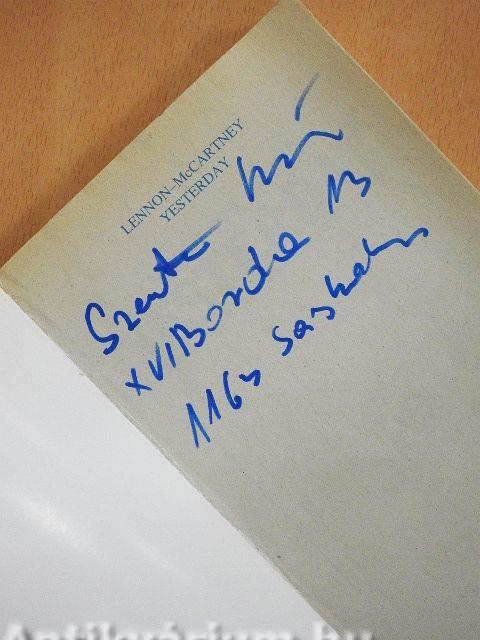 LENNON–McCARTNEY
YESTERDAY
Szenta
XVI Borota 13
116 Sashalm
Antikvárium.hu